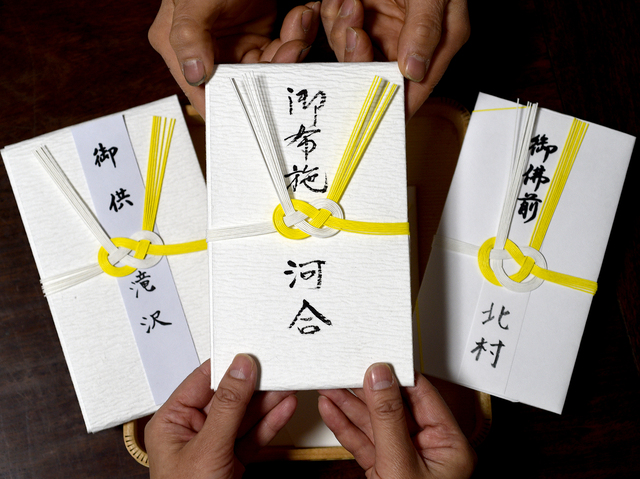 御供
滝沢
御布施
河合
御佛前
北村